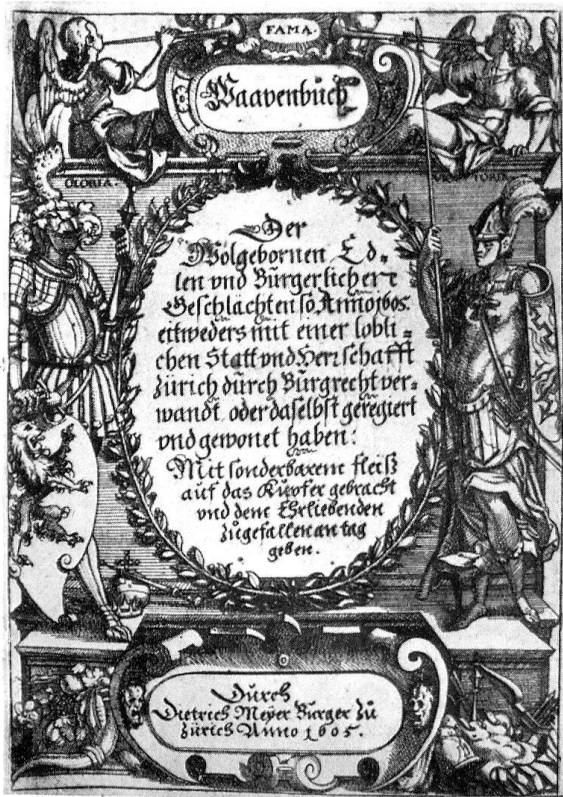 FAMA.
Waapenbuch
GLORIA.
Der
Wolgebornen Ed-
len vnd Burgerlichen
Geschlächten so Anno 1605.
eitweders mit einer lobli-
chen Statt vnd Herrschafft
Zürich durch Burgrecht ver-
wandt, oder daselbst geregiert
vnd gewonet haben:
Mit sonderbarem fleiß
auf das Kupfer gebracht
vnd dem Ehrliebenden
zugefallen an tag
geben.
Durch
Dietrich Meÿer Burger Zu
Zürich Anno 1605.